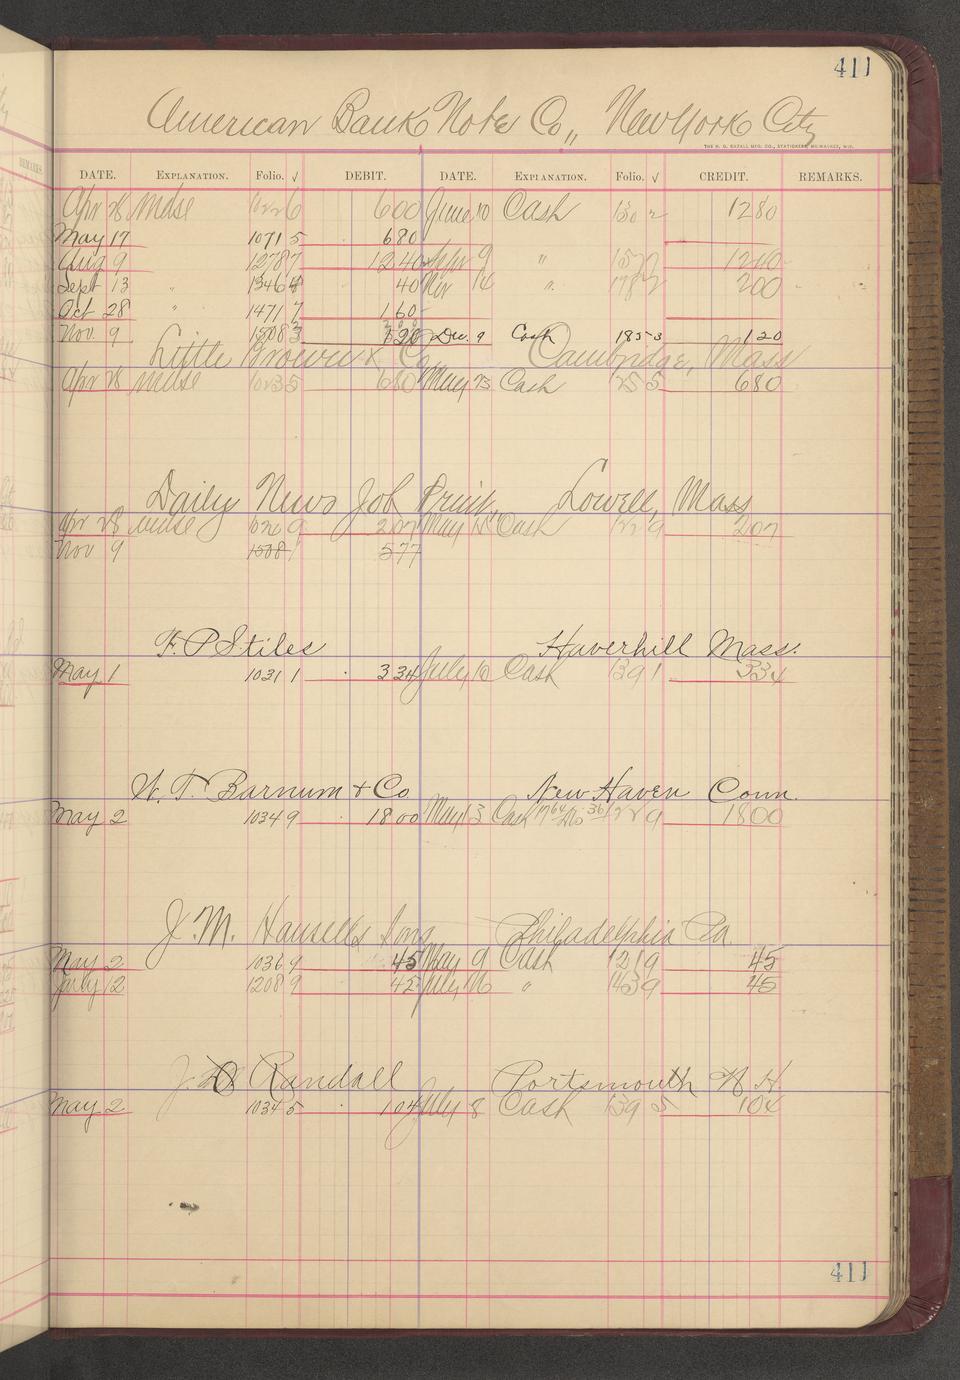 411
American Bank Note Co., New York City
THE H. G. RAZALL MFG. CO., STATIONERS, MILWAUKEE, WIS.
DATE. EXPLANATION. Folio. √ DEBIT. DATE. EXPLANATION. Folio. √ CREDIT. REMARKS.
Apr 28 Mdse 1022 6 600 June 10 Cash 130 2 1280
May 17 1071 5 680
Aug 9 1278 7 1240 9 " 157 1240
Sept 13 " 1346 8 40 Nov 14 " 178 2 200
Oct 28 " 1471 7 160
Nov. 9 1508 3 120 Dec. 9 Cash 185 3 120
Little Brown & Co Cambridge, Mass
Apr 28 Mdse 1023 5 680 May 23 Cash 125 5 680
Daily News Job Print, Lowell, Mass
Apr 28 Mdse 1026 9 207 May 15 Cash 122 9 207
Nov 9 1508 1 577
F. P. Stiles Haverhill Mass.
May 1 1031 1 334 July 10 Cash 139 1 334
W. T. Barnum & Co New Haven Conn.
May 2 1034 9 1800 May 13 Cash 1764 36 122 9 1800
J. M. Hansell's Sons Philadelphia Pa.
May 2 1036 9 45 May 9 Cash 121 9 45
July 12 1208 9 45 July 16 " 143 9 45
J. Randall Portsmouth N. H.
May 2 1034 5 104 July 8 Cash 139 5 104
411